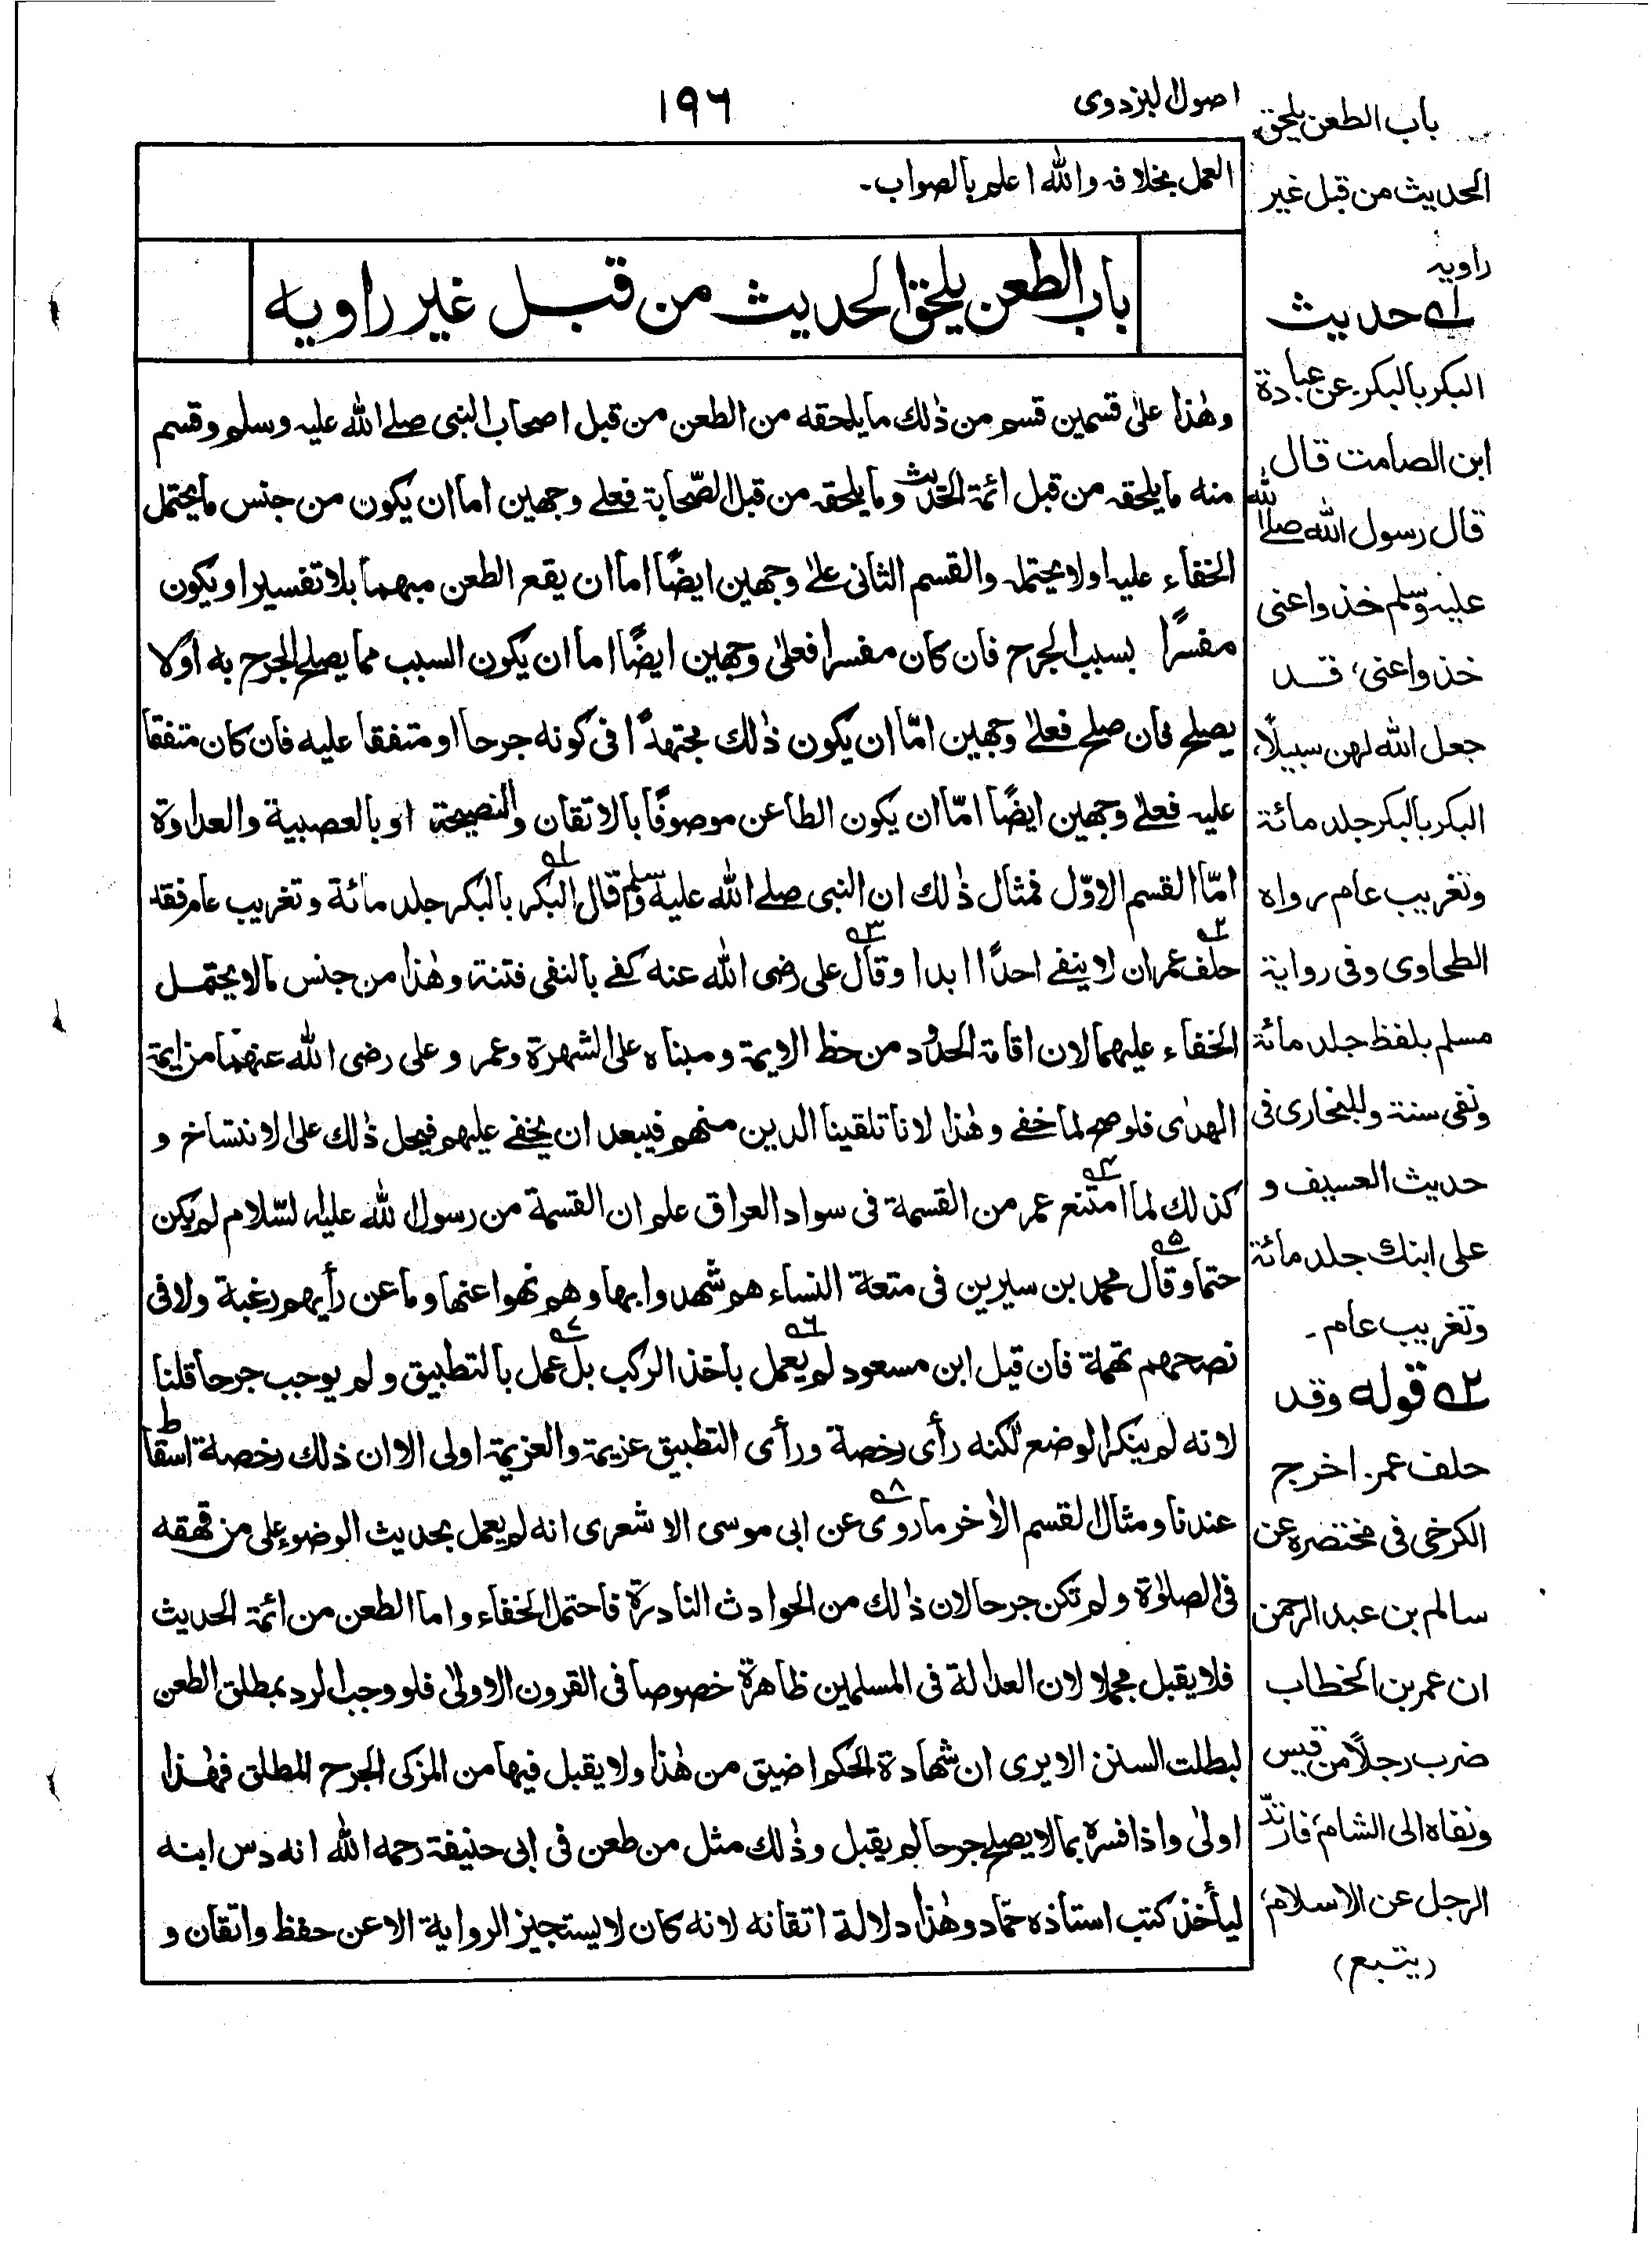 اصول البزدوى
١٩٦
العمل بخلافه والله اعلم بالصواب۔
باب الطعن يلحق الحديث من قبل غير راويه
وهٰذا علىٰ قسمين قسم من ذٰلك ما يلحقه من الطعن من قبل اصحاب النبى صلے الله عليه وسلم وقسم
منه ما يلحقه من قبل ائمة الحديث وما يلحقه من قبل الصّحابة فعلے وجهين اما ان يكون من جنس ما يحتمل
الخفاء عليه اولا يحتمله والقسم الثانى علےٰ وجهين ايضًا اما ان يقع الطعن مبهما بلا تفسير او يكون
مفسرًا بسبب الجرح فان كان مفسرا فعلىٰ وجهين ايضًا اما ان يكون السبب مما يصلح الجرح به اولا
يصلح فان صلح فعلےٰ وجهين امّا ان يكون ذٰلك مجتهدًا فى كونه جرحا او متفقا عليه فان كان متفقا
عليه فعلے وجهين ايضًا امّا ان يكون الطاعن موصوفًا بالاتقان والنصيحة او بالعصبية والعداوة
امّا القسم الاوّل فمثال ذٰلك ان النبى صلے الله عليه وسلم قال البكر بالبكر جلد مائة وتغريب عام فقد
حلف عمر ان لا ينفے احدًا ابدا وقال على رضى الله عنه كفے بالنفى فتنة وهٰذا من جنس مالا يحتمل
الخفاء عليهما لان اقامة الحدود من حظ الايمة ومبناه على الشهرة وعمر وعلى رضى الله عنهما من ايمة
الهدٰى فلو صح لما خفے وهٰذا لانا تلقينا الدين منهم فيبعد ان يخفے عليهم فيحمل ذٰلك على الانتساخ و
كذٰلك لما امتنع عمر من القسمة فى سواد العراق علم ان القسمة من رسول الله عليه السّلام لم يكن
حتما وقال محمد بن سيرين فى متعة النساء هم شهدوا بها وهم نهوا عنها وما عن رأيهم رغبة ولا فى
نصحهم تهمة فان قيل ابن مسعود لم يعمل باخذ الركب بل عمل بالتطبيق ولم يوجب جرحا قلنا
لانه لم ينكر الوضع لٰكنه رأى رخصة ورأى التطبيق عزيمة والعزيمة اولى الا ان ذٰلك رخصة اسقاط
عندنا ومثال القسم الاٰخر ما روى عن ابى موسى الاشعرى انه لم يعمل بحديث الوضوء على من قهقه
فى الصلٰوة ولم تكن جرحا لان ذٰلك من الحوادث النادرة فاحتمل الخفاء واما الطعن من ائمة الحديث
فلا يقبل مجملا لان العدالة فى المسلمين ظاهرة خصوصا فى القرون الاولىٰ فلو وجب الرد بمطلق الطعن
لبطلت السنن الا يرى ان شهادة الحكم اضيق من هٰذا ولا يقبل فيها من المزكى الجرح المطلق فهٰذا
اولىٰ واذا فسره بما لا يصلح جرحا لم يقبل وذٰلك مثل من طعن فى ابى حنيفة رحمه الله انه دس ابنه
ليأخذ كتب استاذه حمّاد وهٰذا دلالة اتقانه لانه كان لا يستجيز الرواية الا عن حفظ واتقان و
باب الطعن يلحق
الحديث من قبل غير
راويه
١ے حديث
البكر بالبكر۔ عن عبادة
ابن الصامت قال
قال رسول الله صلے الله
عليه وسلم خذوا عنى
خذوا عنى، قد
جعل الله لهن سبيلًا،
البكر بالبكر جلد مائة
وتغريب عام رواه
الطحاوى وفى رواية
مسلم بلفظ جلد مائة
ونفى سنة وللبخارى فى
حديث العسيف و
على ابنك جلد مائة
وتغريب عام۔
٢ے قوله وقد
حلف عمر۔ اخرج
الكرخى فى مختصره عن
سالم بن عبد الرحمن
ان عمر بن الخطاب
ضرب رجلًا من قيس
ونفاه الى الشام، فارتدّ
الرجل عن الاسلام،
(يتبع)